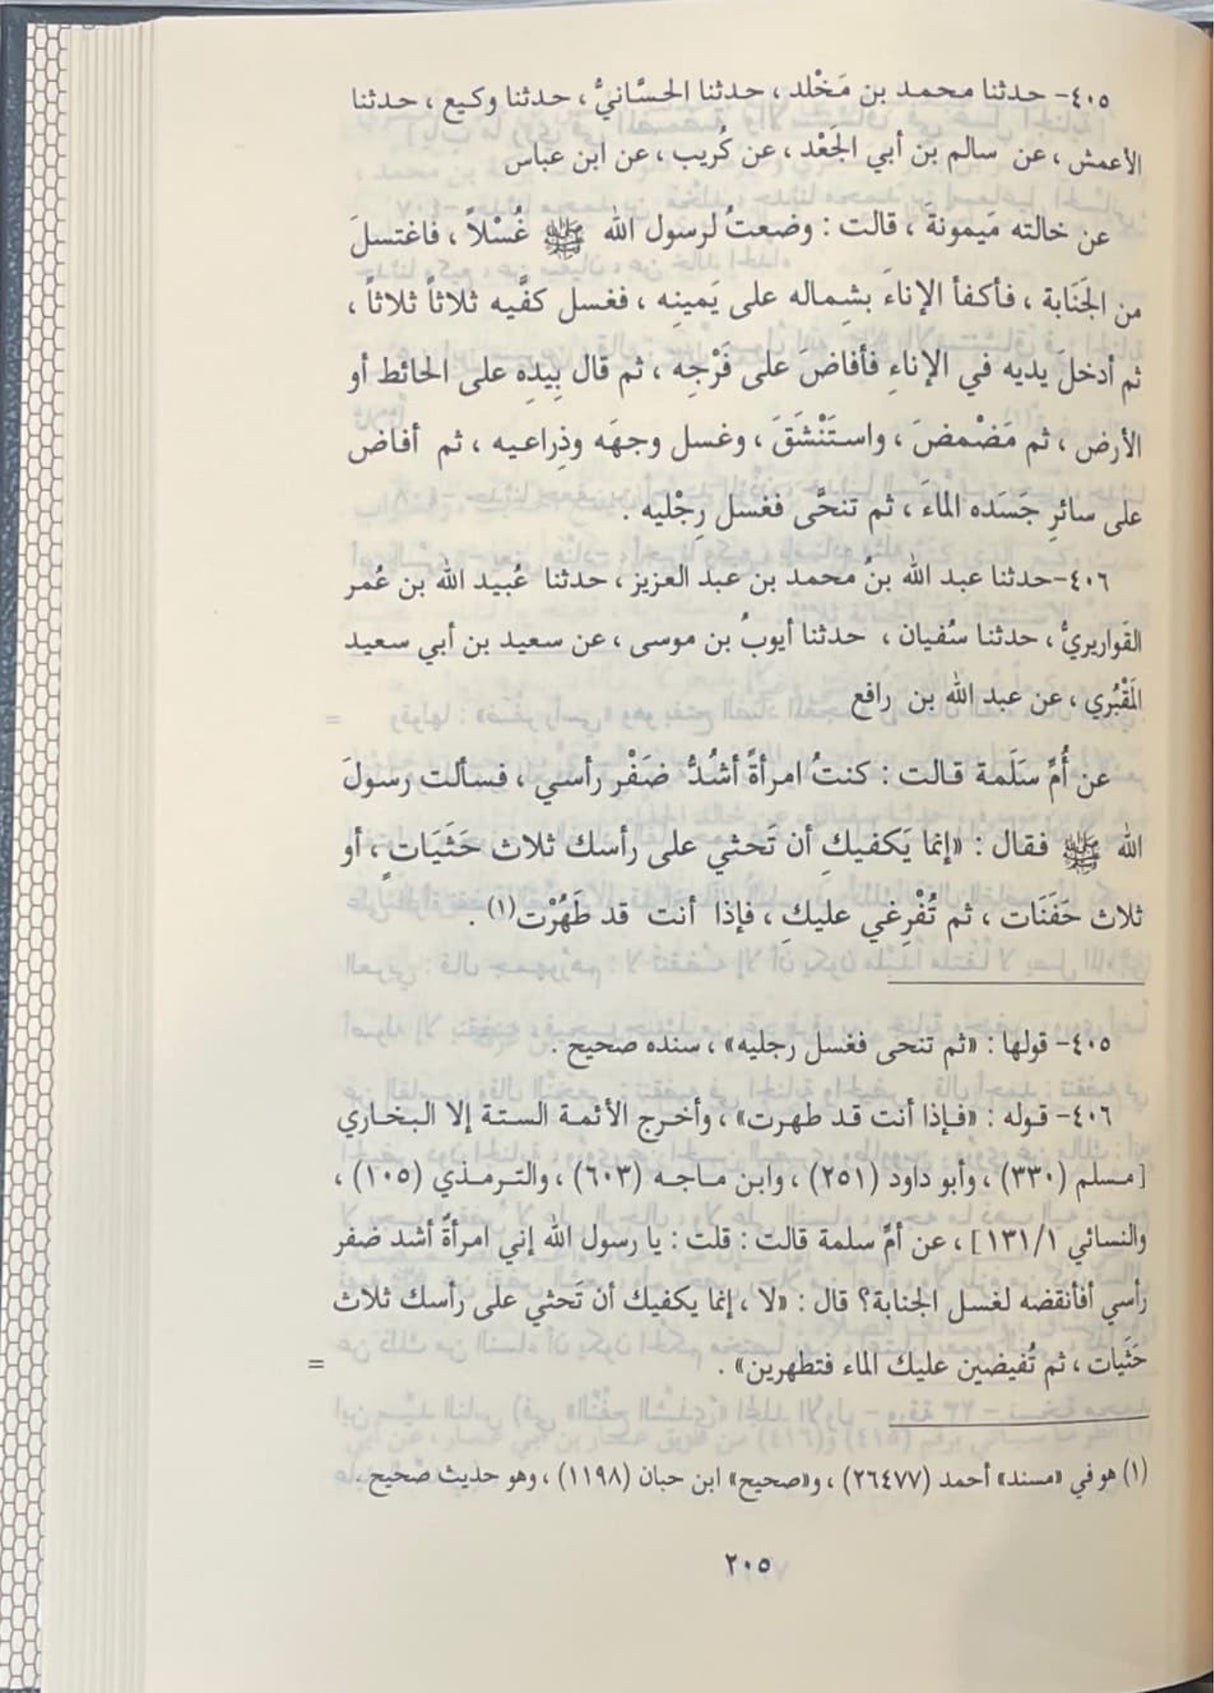 ٤٠٥- حدثنا محمد بن مَخْلد ، حدثنا الحسَّانيُّ ، حدثنا وكيع ، حدثنا
الأعمش ، عن سالم بن أبي الجَعْد ، عن كُريب ، عن ابن عباس
عن خالته مَيمونةَ ، قالت : وضعتُ لرسول الله ﷺ غُسْلاً ، فاغتسلَ
من الجَنَابة ، فأكفأ الإناءَ بشِماله على يَمينِه ، فغسل كفَّيه ثلاثاً ثلاثاً ،
ثم أدخلَ يديه في الإناءِ فأفاضَ على فَرْجِه ، ثم قال بِيدِه على الحائط أو
الأرض ، ثم مَضْمضَ ، واستَنْشَقَ ، وغسل وجهَه وذِراعيه ، ثم أفاض
على سائرِ جَسَده الماءَ ، ثم تنحَّى فغسل رِجْليه .
٤٠٦-حدثنا عبد الله بنُ محمد بن عبد العزيز ، حدثنا عُبيد الله بن عُمر
القَواريريُّ ، حدثنا سُفيان ، حدثنا أيوبُ بن موسى ، عن سعيد بن أبي سعيد
المَقْبُري ، عن عبد الله بن رافع
عن أُمِّ سَلَمة قالت : كنتُ امرأةً أشُدُّ ضَفْر رأسي ، فسألت رسولَ
الله ﷺ فقال : «إنما يَكفيكِ أن تَحثي على رأسك ثلاث حَثَيَاتٍ ، أو
ثلاث حَفَنَات ، ثم تُفْرِغي عليكِ ، فإذا أنت قد طَهُرْت(١) .
٤٠٥- قولها : «ثم تنحى فغسل رجليه» ، سنده صحيح .
٤٠٦- قوله : «فإذا أنت قد طهرت» ، وأخرج الأئمة الستة إلا البخاري
[مسلم (٣٣٠) ، وأبو داود (٢٥١) ، وابن ماجه (٦٠٣) ، والترمذي (١٠٥) ،
والنسائي ١٣١/١] ، عن أمِّ سلمة قالت : قلت : يا رسول الله إني امرأةٌ أشد ضفر
رأسي أفأنقضه لغسل الجنابة؟ قال : «لا ، إنما يكفيك أن تَحثي على رأسك ثلاث
حَثَيات ، ثم تُفيضين عليك الماء فتطهرين» . =
(١) هو في «مسند» أحمد (٢٦٤٧٧) ، و«صحيح» ابن حبان (١١٩٨) ، وهو حديث صحيح .
٢٠٥